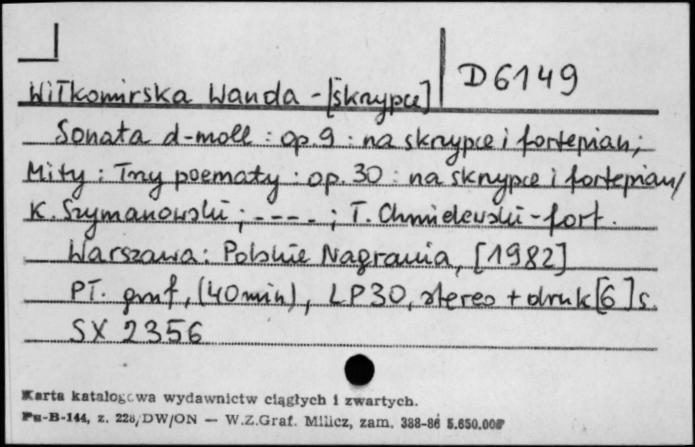 D 6149
Wiłkomirska Wanda - [skrzypce]
Sonata d-moll : op. 9 : na skrzypce i fortepian ;
Mity : Trzy poematy : op. 30 : na skrzypce i fortepian /
K. Szymanowski ; - - - - ; T. Chmielewski - fort.
Warszawa : Polskie Nagrania, [1982]
Pł. gramf, (40 min), LP 30, stereo + druk [6] s.
SX 2356
Karta katalogowa wydawnictw ciągłych i zwartych.
Pu-B-144, z. 228/DW/ON — W.Z.Graf. Milicz, zam. 388-86 5.650.000